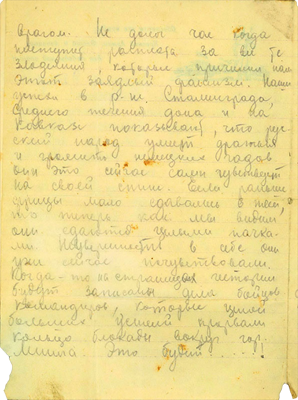 врагом. Не долог час когда
наступит расплата за все те
злодеяния которые причинил нам
этот заядлый фашизм. Наши
успехи в р-не. Сталинграда,
среднего течения дона и на
Кавказе показывают, что рус-
ский народ умеет драться
и громить немецких гадов
они это сейчас сами чувствуют
на своей спине. Если раньше
фрицы мало сдавались в плен,
то теперь как мы видим
они сдаются целыми пачка-
ми. Неуверенность в себе они
уже сейчас почувствовали.
Когда-то на страницах истории
будут записаны дела бойцов
командиров, которые ценой
больших усилий прорвали
кольцо блокады вокруг гор.
Ленина это будет .....!